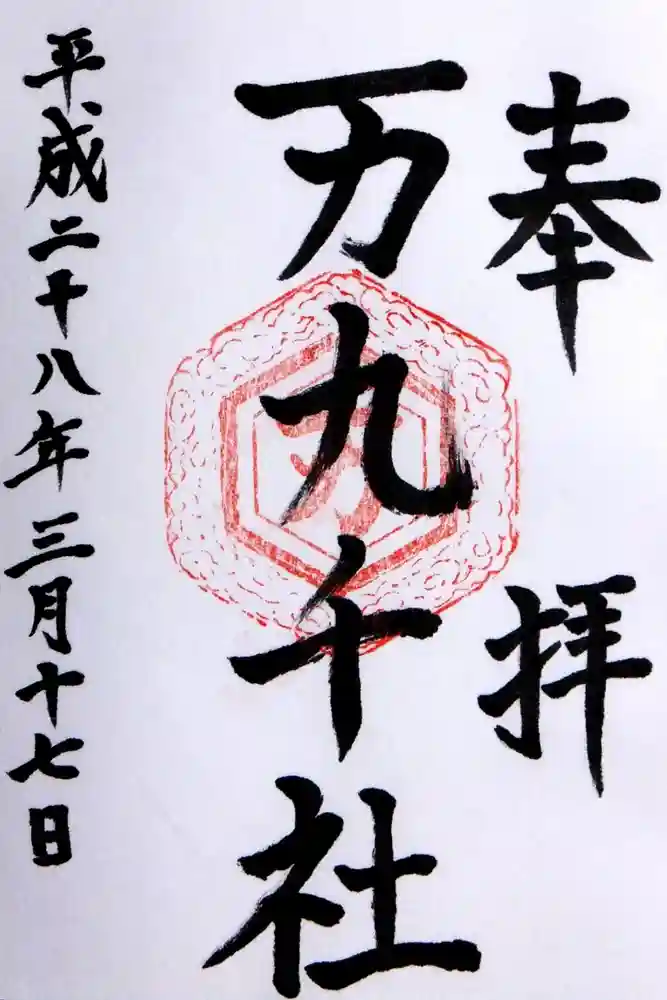 奉拝
万九千社
平成二十八年三月十七日